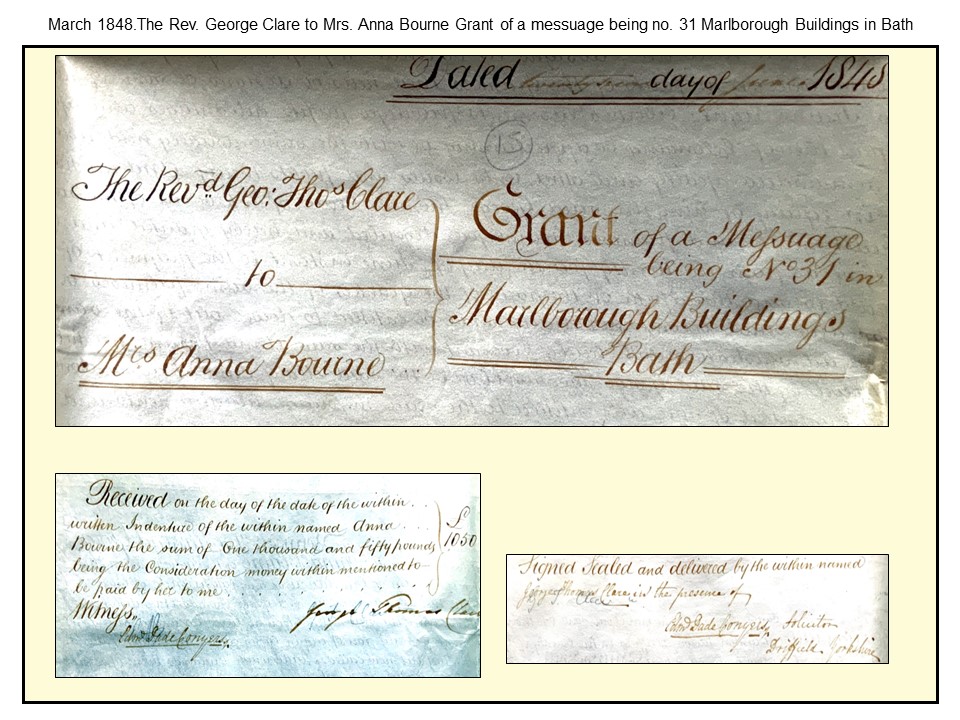 March 1848.The Rev. George Clare to Mrs. Anna Bourne Grant of a messuage being no. 31 Marlborough Buildings in Bath
Dated day of 1848
(15)
The Revd. Geo: Thos Clare
to
Mrs Anna Bourne
Grant of a Messuage
being No 31 in
Marlborough Buildings
Bath
Received on the day of the date of the within
written Indenture of the within named Anna
Bourne the sum of One thousand and fifty pounds
being the Consideration money within mentioned to
be paid by her to me
£
1050
Witness,
George Thomas Clare
Edwd Dade Conyers
Signed Sealed and delivered by the within named
George Thomas Clare in the presence of
Edwd Dade Conyers Solicitor
Driffield Yorkshire